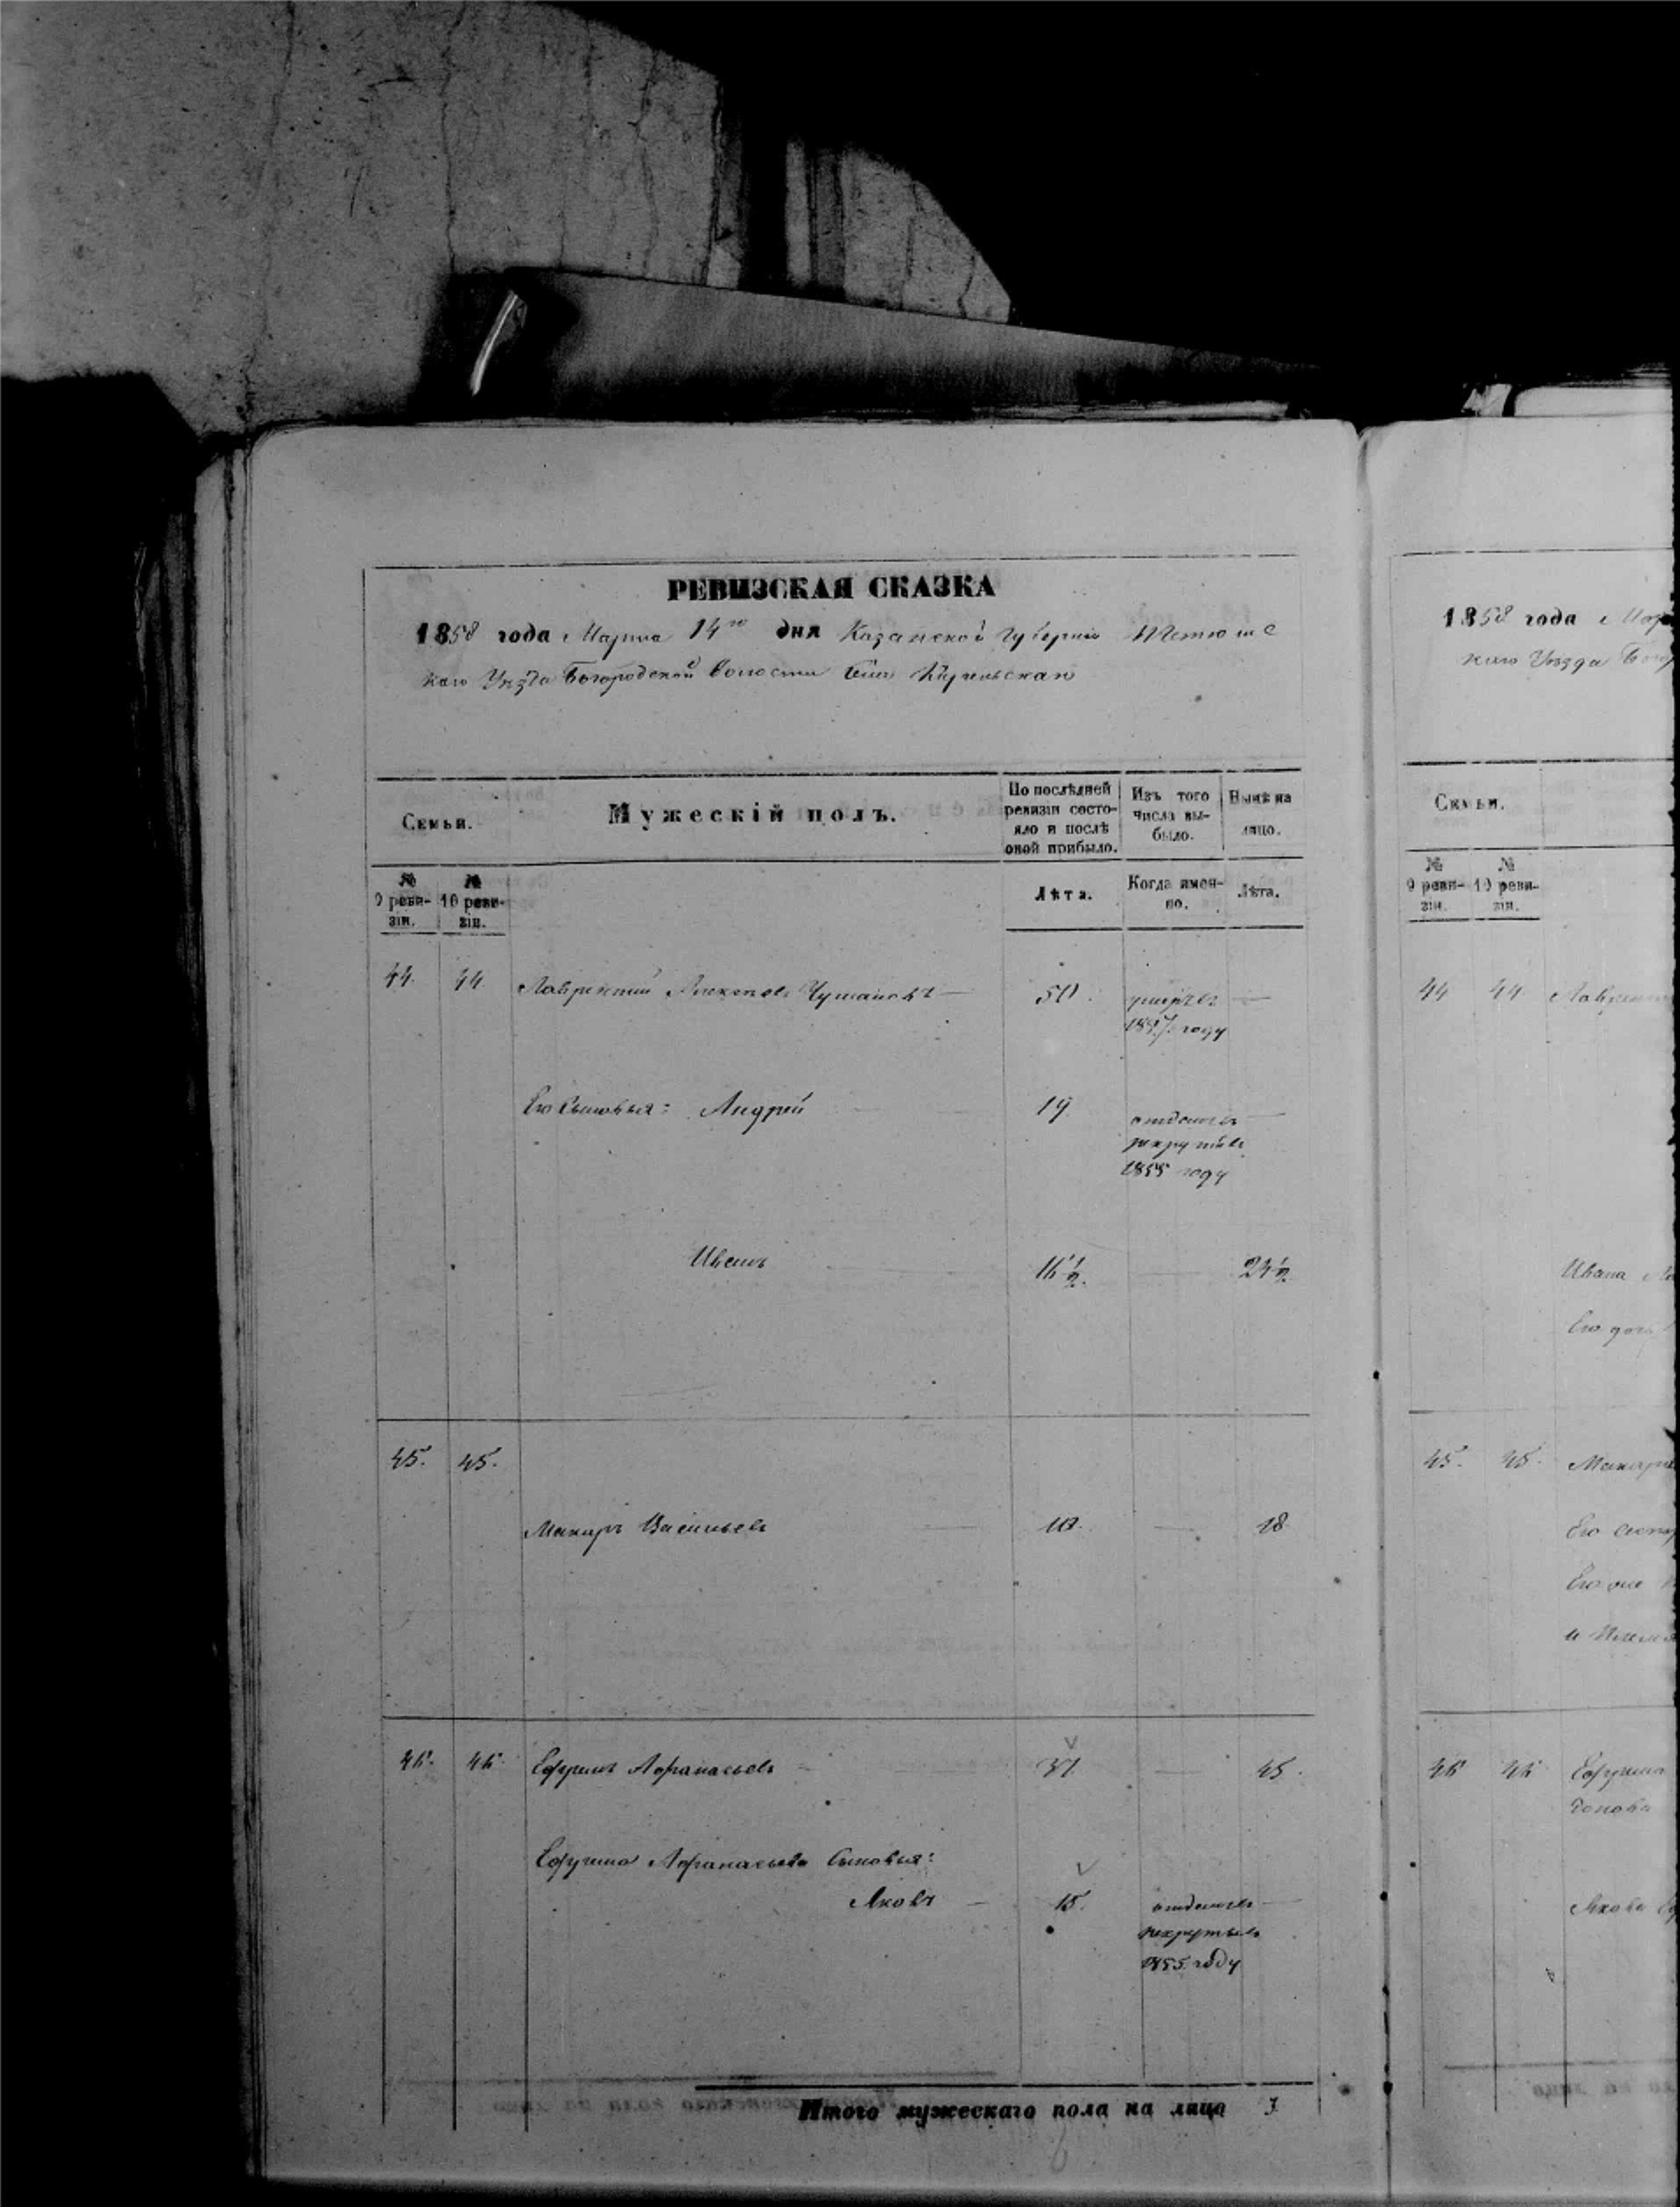 РЕВИЗСКАЯ СКАЗКА
1858 года Марта 14го дня Казанской Губерніи Тетюшс
каго Уѣзда Богородской Волости
Семьи.
Мужескій полъ.
По послѣдней ревизіи состояло и послѣ оной прибыло.
Изъ того числа выбыло.
Нынѣ на лицо.
№ 9 ревизіи.
№ 10 ревизіи.
Лѣта.
Когда именно.
Лѣта.
44. 44. Лаврентій Чушановъ 50. умеръ
1857 году
Его Сыновья: Андрей 19 отданъ въ
рекруты въ
1855 году
Иванъ 16½. 24½.
45. 45.
Макаръ Васильевъ 10. 18.
46. 46. Ефремъ Афанасьевъ 37. 45.
Ефрема Афанасьева Сыновья:
Яковъ 15. отданъ въ
рекруты въ
1855 году
Итого мужескаго пола на лицо 3
1858 года
каго Уѣзда
Семьи.
№ 9 ревизіи.
№ 10 ревизіи.
44 44
Ивана
Его дочь
45. 45.
Его
Его же
и
46 46 Ефрема
Якова